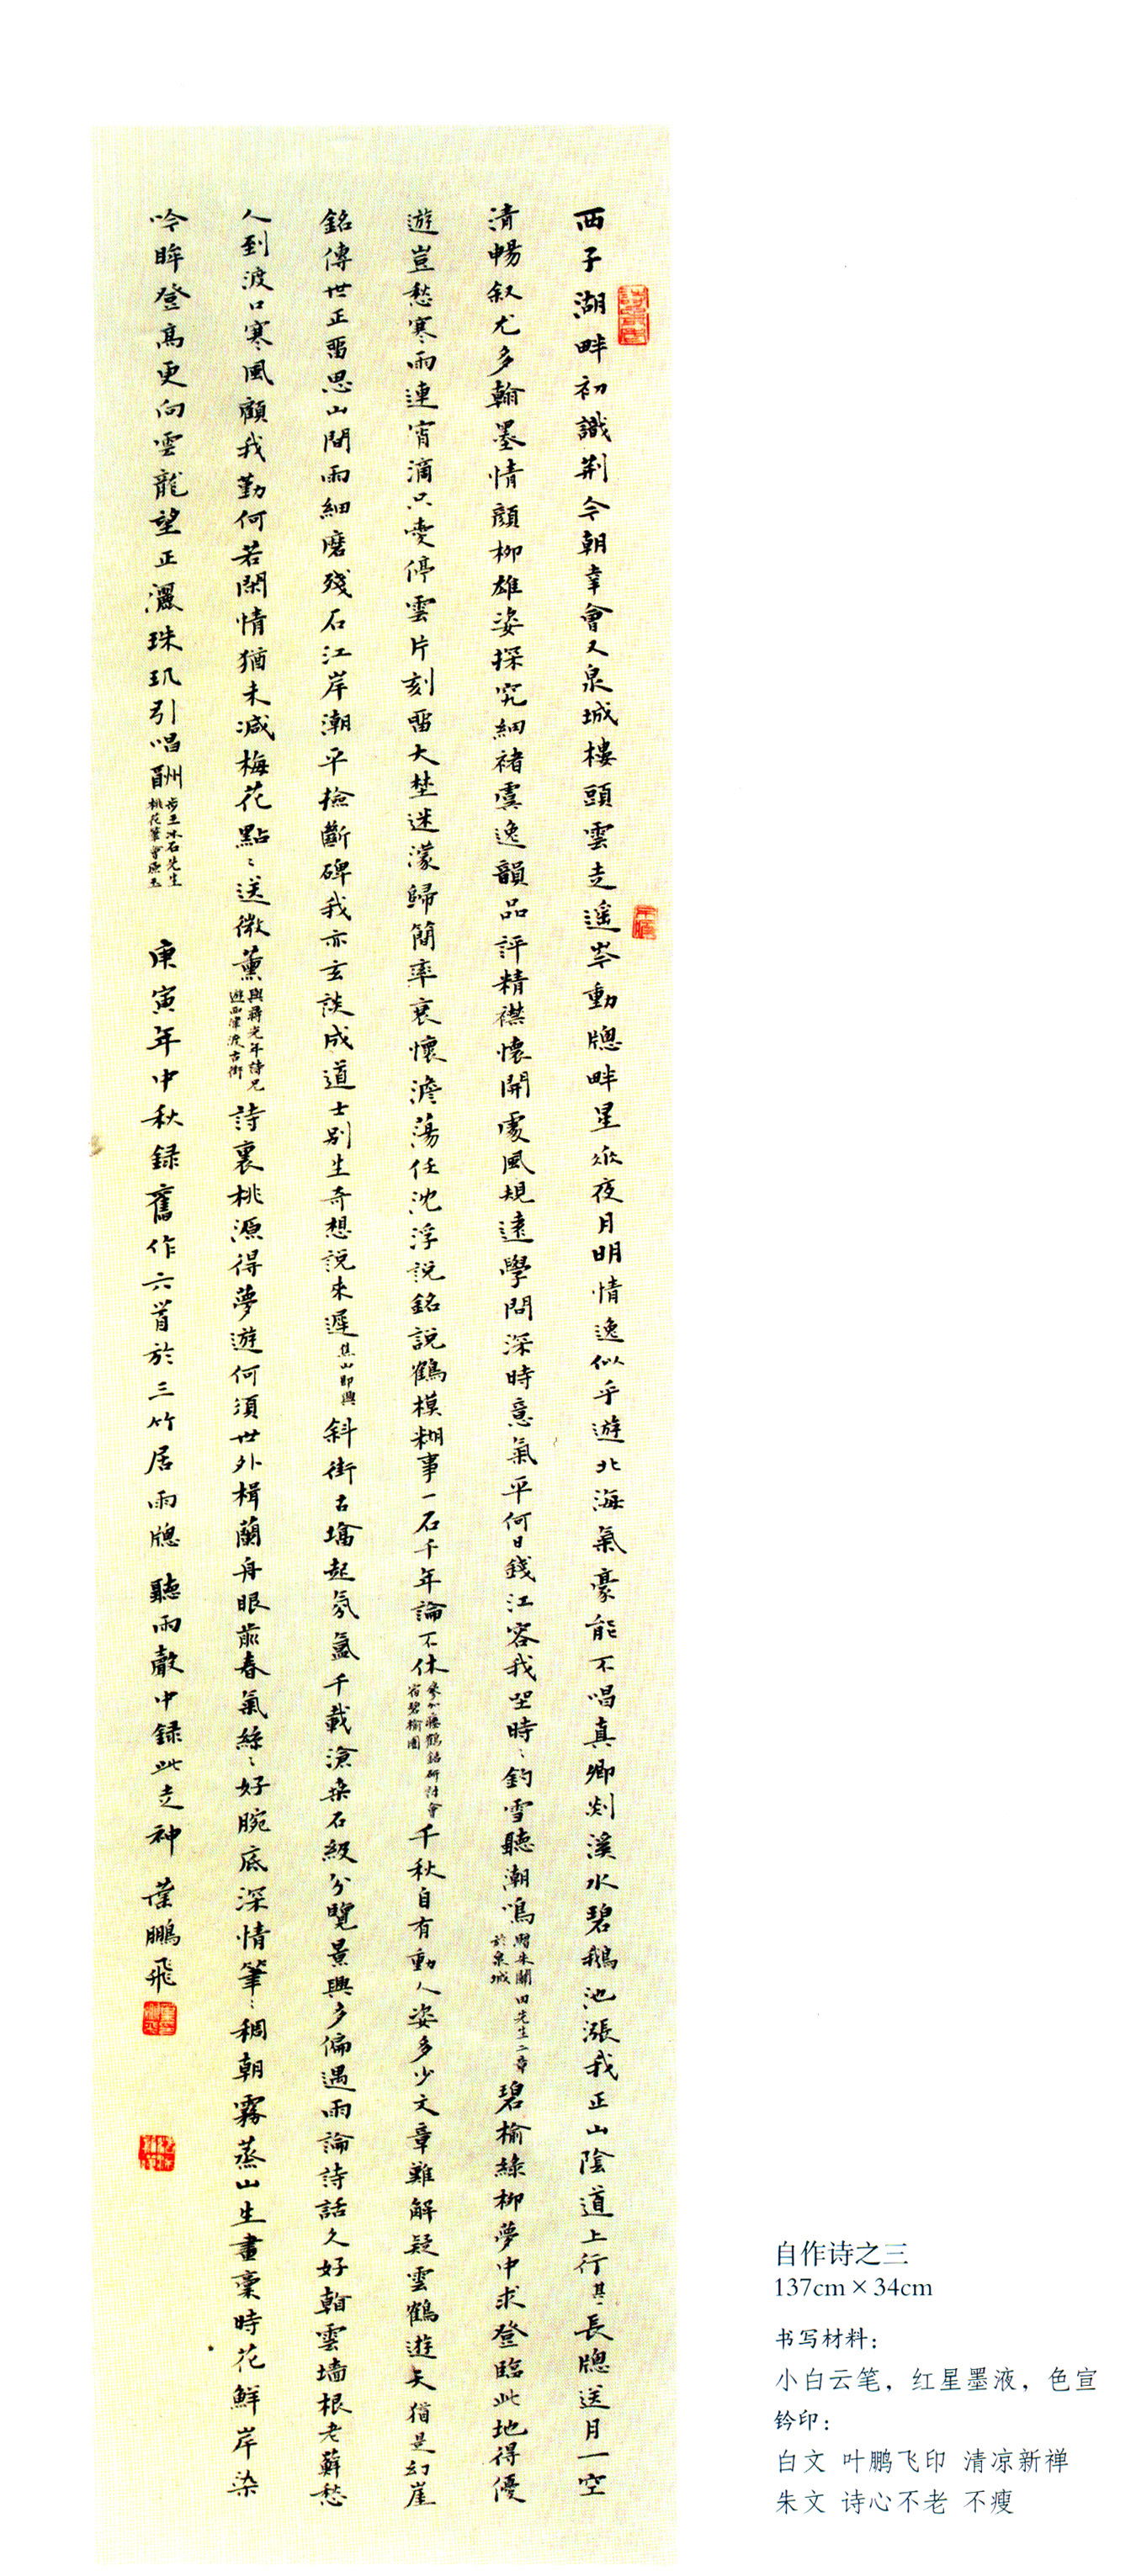 西子湖畔初識荆今朝幸會又泉城樓頭雲走遥岑動牕畔星𣣇夜月明情逸似乎遊北海氣豪能不唱真卿剡溪水碧鵝池漲我正山陰道上行其一長牕送月一空
清暢叙尤多翰墨情顔柳雄姿探究細褚虞逸韻品評精襟懷開處風規遠學問深時意氣平何日錢江容我坐時〻釣雪聽潮鳴贈朱關田先生二章於泉城碧榆綠柳夢中求登臨此地得優
遊豈愁寒雨連宵滴只愛停雲片刻畱大埜迷濛歸簡率襄懷澹蕩任沈浮説銘説鶴模糊事一石千年論不休參加瘞鶴銘研討會宿碧榆園千秋自有動人姿多少文章難解疑雲鶴遊天猶是幻崖
銘傳世正畱思山間雨細磨殘石江岸潮平撿斷碑我亦玄談成道士别生奇想説來遲焦山即興斜街古墻起氛氳千載滄桒石級分覽景興多偏遇雨論詩話久好翰雲墻根老蘚愁
人到渡口寒風顧我勤何若閑情猶未减梅花點〻送微薰與蔣光年詩兄遊西津渡古街詩裏桃源得夢遊何須世外楫蘭舟眼前春氣絲〻好腕底深情筆〻稠朝霧蒸山生畫稾時花鮮岸染
吟眸登高更向雲龍望正灑珠璣引唱酬步王冰石先生桃花筆會原玉 庚寅年中秋録舊作六首於三竹居雨牕 聽雨聲中録此走神 葉鵬飛
自作诗之三
137cm×34cm
书写材料：
小白云笔，红星墨液，色宣
钤印：
白文 叶鹏飞印 清凉新禅
朱文 诗心不老 不瘦